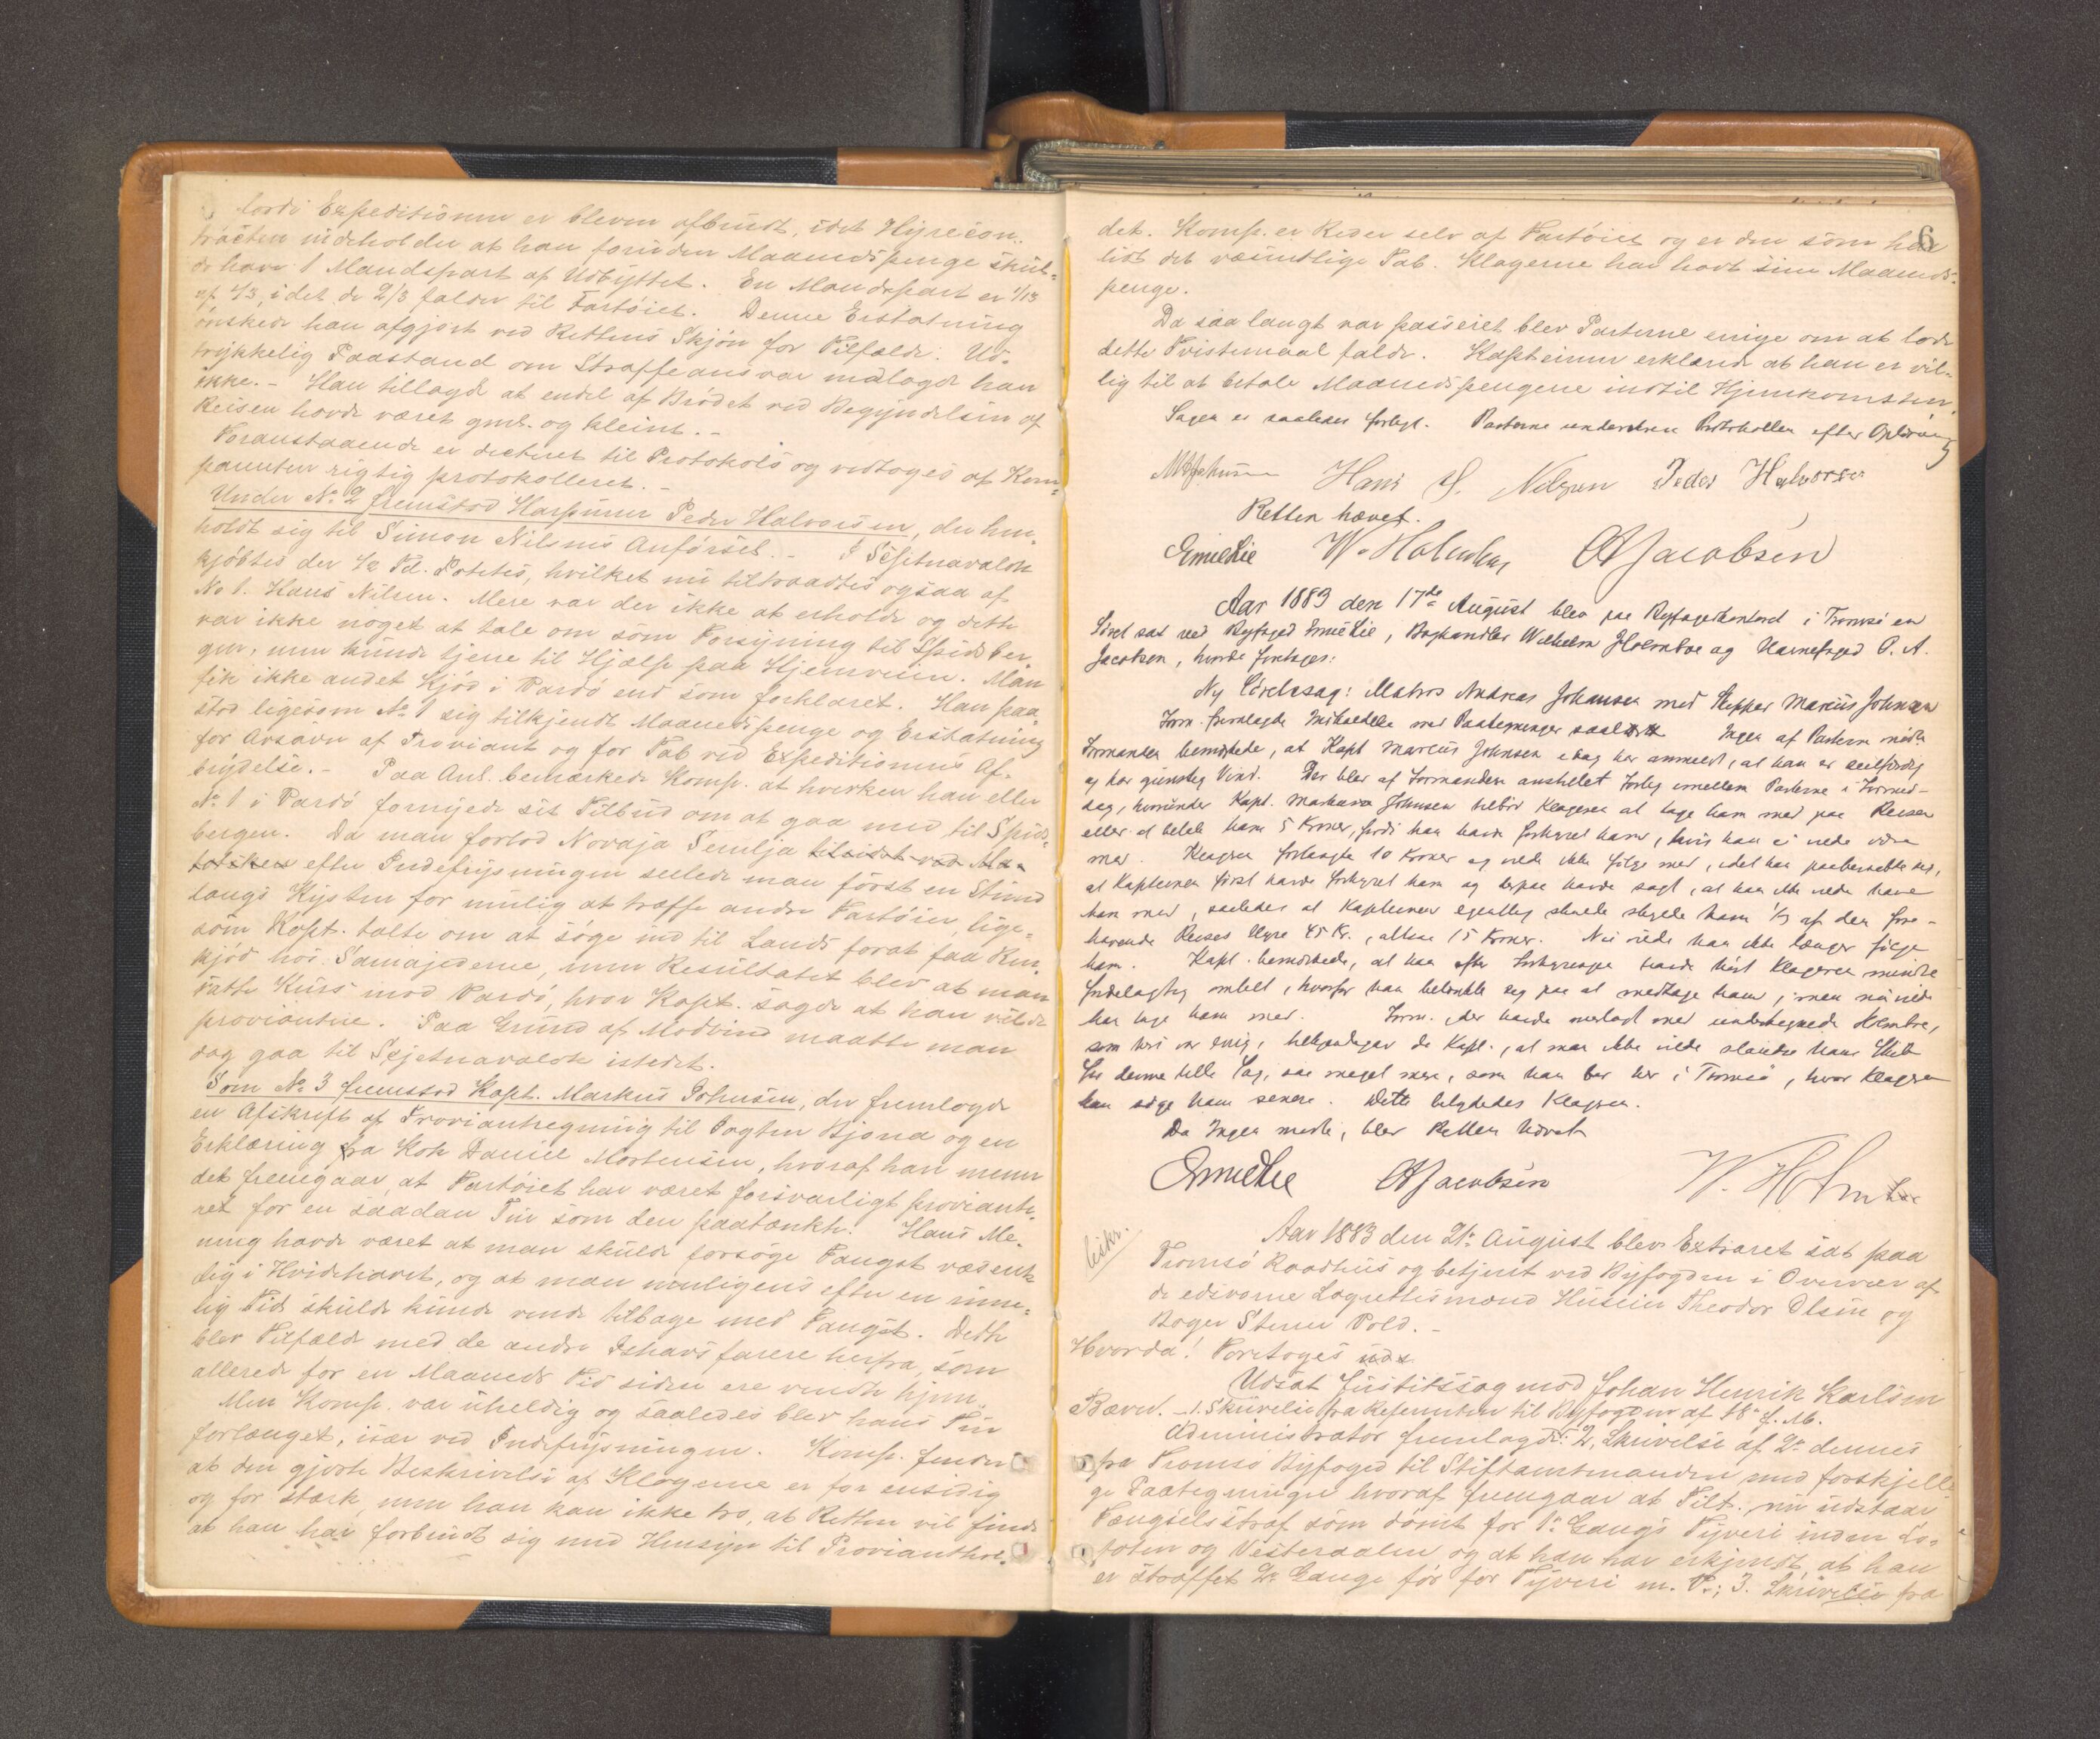 fordi Expeditionen er bleven afbrudt, idet Hyrecon-
tracten indeholder at han foruden Maanedspenge skul-
de have 1 Mandspart af Udbyttet. En Mandspart er 1/13
af 1/3, idet de 2/3 falder til Fartøiet. Denne Erstatning
ønskede han afgjort ved Rettens Skjøn for Tilfælde. Ud-
trykkelig Paastand om Straffeansvar nedlagde han
ikke. - Han tillagde at endel af Brødet ved Begyndelsen af
Reisen havde været gml. og kleint. -
Foranstaaende er dicteret til Protokols og vedtoges af Kom-
parenten rigtig protokolleret. -
Under No 2 fremstod Harpuner Peder Halvorsen, der hen-
holdt sig til Simon Nilsens Anførsel. - I Sejetnavalok
kjøbtes der 1/2 Td. Potetes, hvilket nu tiltraadtes ogsaa af
No 1. Hans Nilsen. Mere var der ikke at erholde og dette
var ikke noget at tale om som Forsyning til Spidsber-
gen, men kunde tjene til Hjælp paa Hjemveien. Man
fik ikke andet Kjød i Vardø end som forklaret. Han paa-
stod ligesom No 1 sig tilkjendt Maanedspenge og Erstatning
for Avsavn af Proviant og for Tab ved Expeditionens Af-
brydelse. - Paa Anl. bemærkede Komp. at hverken han eller
No 1 i Vardø fornyede sit Tilbud om at gaa med til Spids-
bergen. Da man forlod Novaja Semlja
efter Indefrysningen seilede man først en Stund
langs Kysten for mulig at træffe andre Fartøier, lige-
som Kapt. talte om at søge ind til Lands forat faa Ren-
kjød hos Samojederne, men Resultatet blev at man
satte Kurs mod Vardø, hvor Kapt. sagde at han vilde
proviantere. Paa Grund af Modvind maatte man
dog gaa til Sejetnavalok istedet.
Som No 3 fremstod Kapt. Markus Johnsen, der fremlagde
en Afskrift af Proviantregning til Jagten Bjona og en
Erklæring fra Kok Daniel Mortensen, hvoraf han mener
det fremgaar, at Fartøiet har været forsvarligt provianter-
ret for en saadan Tur som den paatænkte. Hans Me-
ning havde været at man skulde forsøge Fangst væsent-
lig i Hvidehavet, og at man muligens efter en rime-
lig Tid skulde kunde vende tilbage med Fangst. Dette
blev Tilfælde med de andre Ishavsfarere herfra, som
allerede for en Maaneds Tid siden ere vendte hjem.
Men Komp. var uheldig og saaledes blev hans Tur
forlænget, især ved Indefrysningen. Komp. finder
at den gjorte Beskrivelse af Klagerne er for ensidig
og for stærk, men han kan ikke tro, at Retten vil finde
at han har forbrudt sig med Hensyn til Provianthol-
6
det. Komp. er Reder selv af Fartøiet og er den som har
lidt det væsentlige Tab. Klagerne har havt sine Maaneds-
penge.
Da saa langt var passeret blev Parterne enige om at lade
dette Tvistemaal falde. Kapteinen erklærede at han er vil-
lig til at betale Maanedspengene indtil Hjemkomsten.
Sagen er saaledes forligt. Parterne underskrev Protokollen efter Oplæsning
MJohnsen Hans H. Nilsen Peder Halvorsen
Retten hævet.
Emil Lie W. Holmboe OAJacobsen
Aar 1883 den 17de August blev paa Byfogedkontoret i Tromsø en
Søret sat ved Byfoged Emil Lie, Boghandler Wilhelm Holmboe og Havnefoged O. A.
Jacobsen, hvorda foretoges:
Ny Søretssag: Matros Andreas Johansen mod Skipper Marcus Johnsen
Form. fremlagde Indkaldelse med Paategninger saal. Ingen af Parterne mødte
Formanden bemærkede, at Kapt Marcus Johnsen idag har anmeldt, at han er seilfærdig
og har gunstig Vind. Der blev af Formanden anstillet Forlig imellem Parterne i Formid-
dag, hvorunder Kapt. Markus Johnsen tilbød Klageren at tage ham med paa Reisen
eller at betale ham 5 Kroner, fordi han havde forhyret ham, hvis han ei vilde være
med. Klageren forlangte 10 Kroner og vilde ikke følge med, idet han paaberaabte sig,
at Kapteinen først havde forhyret ham og derpaa havde sagt, at han ikke vilde have
ham med, saaledes at Kapteinen egentlig skulde skylde ham 1/3 af den fore-
havende Reises Hyre 45 Kr., altsaa 15 Kroner. Nu vilde han ikke længer følge
ham. Kapt. bemærkede, at han efter Forhyringen havde hørt Klageren mindre
fordelagtig omtalt, hvorfor han betænkte sig paa at medtage ham; men nu vilde
han tage ham med. Form. der havde overlagt med undertegnede Holmboe,
som heri var enig, tilkjendegav da Kapt., at man ikke vilde standse hans Skib
for denne lille Sag, saa meget mere, som han bor her i Tromsø, hvor Klageren
kan søge ham senere. Dette betydedes Klageren.
Da Ingen mødte, blev Retten hævet
Emil Lie OAJacobsen W. Holmboe
Eskr.
Aar 1883 den 21de August blev Extraret sat paa
Tromsø Raadhus og betjent ved Byfogden i Overvær af
de edsvorne Lagrettesmænd Huseier Theodor Olsen og
Bager Steen Pold. -
Hvorda! Foretoges
Udsat Justitssag mod Johan Henrik Karlsen
Bævre. - 1. Skrivelse fra Referenten til Byfogden af 18de f. M.
Administrator fremlagde: 2, Skrivelse af 2de dennes
fra Tromsø Byfoged til Stiftamtmanden med forskjelli-
ge Paategninger hvoraf fremgaar at Tilt. nu udstaar
Fængselsstraf som dømt for 1ste Gangs Tyveri inden Lo-
foten og Vesteraalen, og at han har erkjendt, at han
er straffet 2de Gange før for Tyveri m. V.; 3. Skrivelse fra